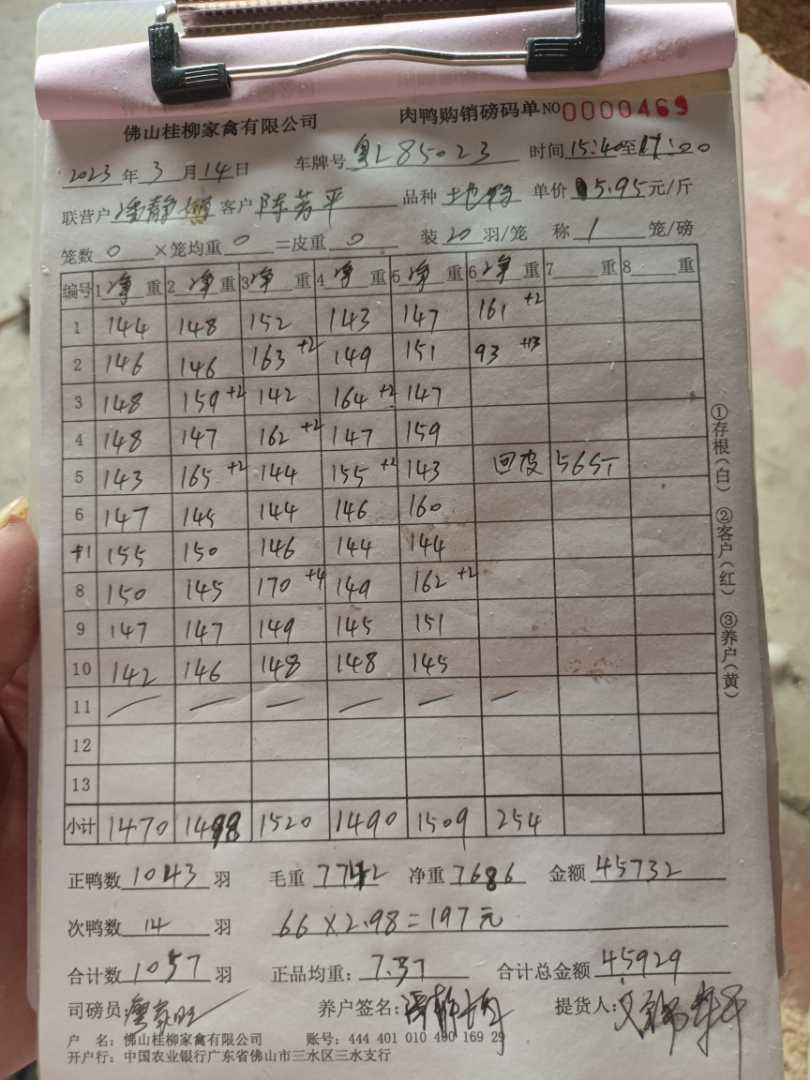 佛山桂柳家禽有限公司 肉鸭购销磅码单 NO 0000469
2023年3月14日 车牌号 粤L85023 时间 15:40至17:00
联营户 客户 陈芳平 品种 土鸭 单价 5.95元/斤
笼数 0 ×笼均重 0 =皮重 0 装 20 羽/笼 称 1 笼/磅
编号 1净重 2净重 3净重 4净重 5净重 6净重 7 重 8 重
1 144 148 152 143 147 161+2
2 146 146 163+2 149 151 93+13
3 148 159+2 142 164+2 147
4 148 147 162+2 147 159
5 143 165+2 144 155+2 143 回皮 56斤
6 147 145 144 146 160
155 150 146 144 144
8 150 145 170+4 149 162+2
9 147 147 149 145 151
10 142 146 148 148 145
11 — — — — — —
12
13
小计 1470 1498 1520 1490 1509 254
正鸭数 1043 羽 毛重 7742 净重 7686 金额 45732
次鸭数 14 羽 66×2.98=197元
合计数 1057 羽 正品均重: 7.37 合计总金额 45929
司磅员: 养户签名: 提货人:
户 名: 佛山桂柳家禽有限公司 账号: 444 401 010 400 169 29
开户行: 中国农业银行广东省佛山市三水区三水支行
①存根(白) ②客户(红) ③养户(黄)